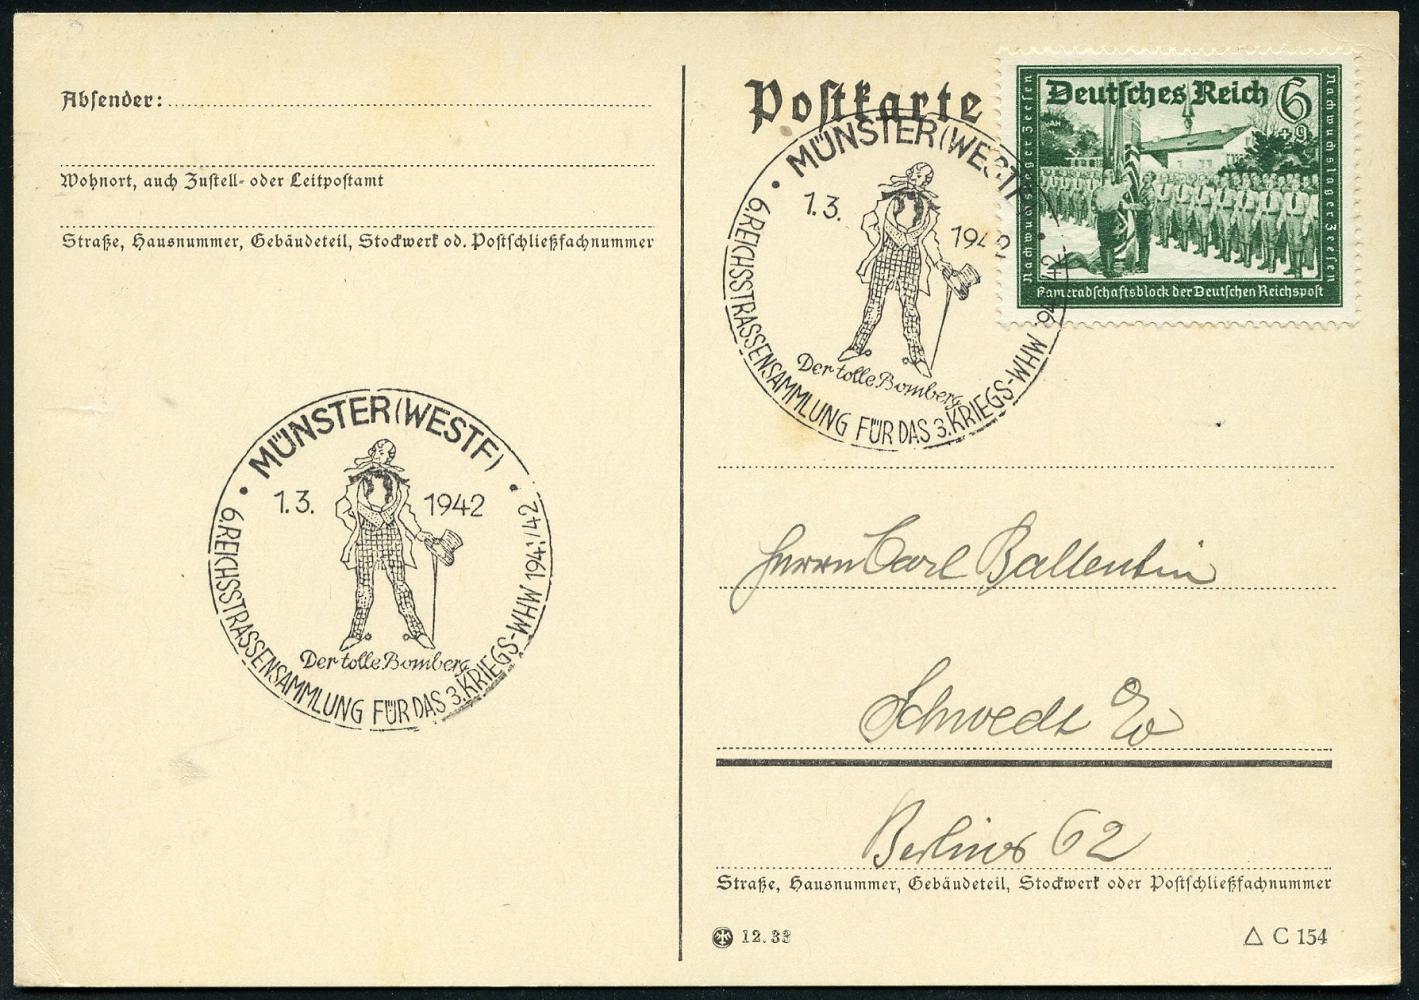 Absender:
Wohnort, auch Zustell- oder Leitpostamt
Straße, Hausnummer, Gebäudeteil, Stockwerk od. Postschließfachnummer
MÜNSTER (WESTF)
1.3. 1942
Der tolle Bomberg
6. REICHSSTRASSENSAMMLUNG FÜR DAS 3. KRIEGS-WHW 1941/42
Postkarte
Deutsches Reich 6
+9
Nachwuchslager Zeesen
Nachwuchslager Zeesen
Kameradschaftsblock der Deutschen Reichspost
MÜNSTER (WESTF)
1.3. 1942
Der tolle Bomberg
6. REICHSSTRASSENSAMMLUNG FÜR DAS 3. KRIEGS-WHW 1941/42
Herrn Carl Ballentin
Schwedt
Berliner 62
Straße, Hausnummer, Gebäudeteil, Stockwerk oder Postschließfachnummer
12. 33
△ C 154